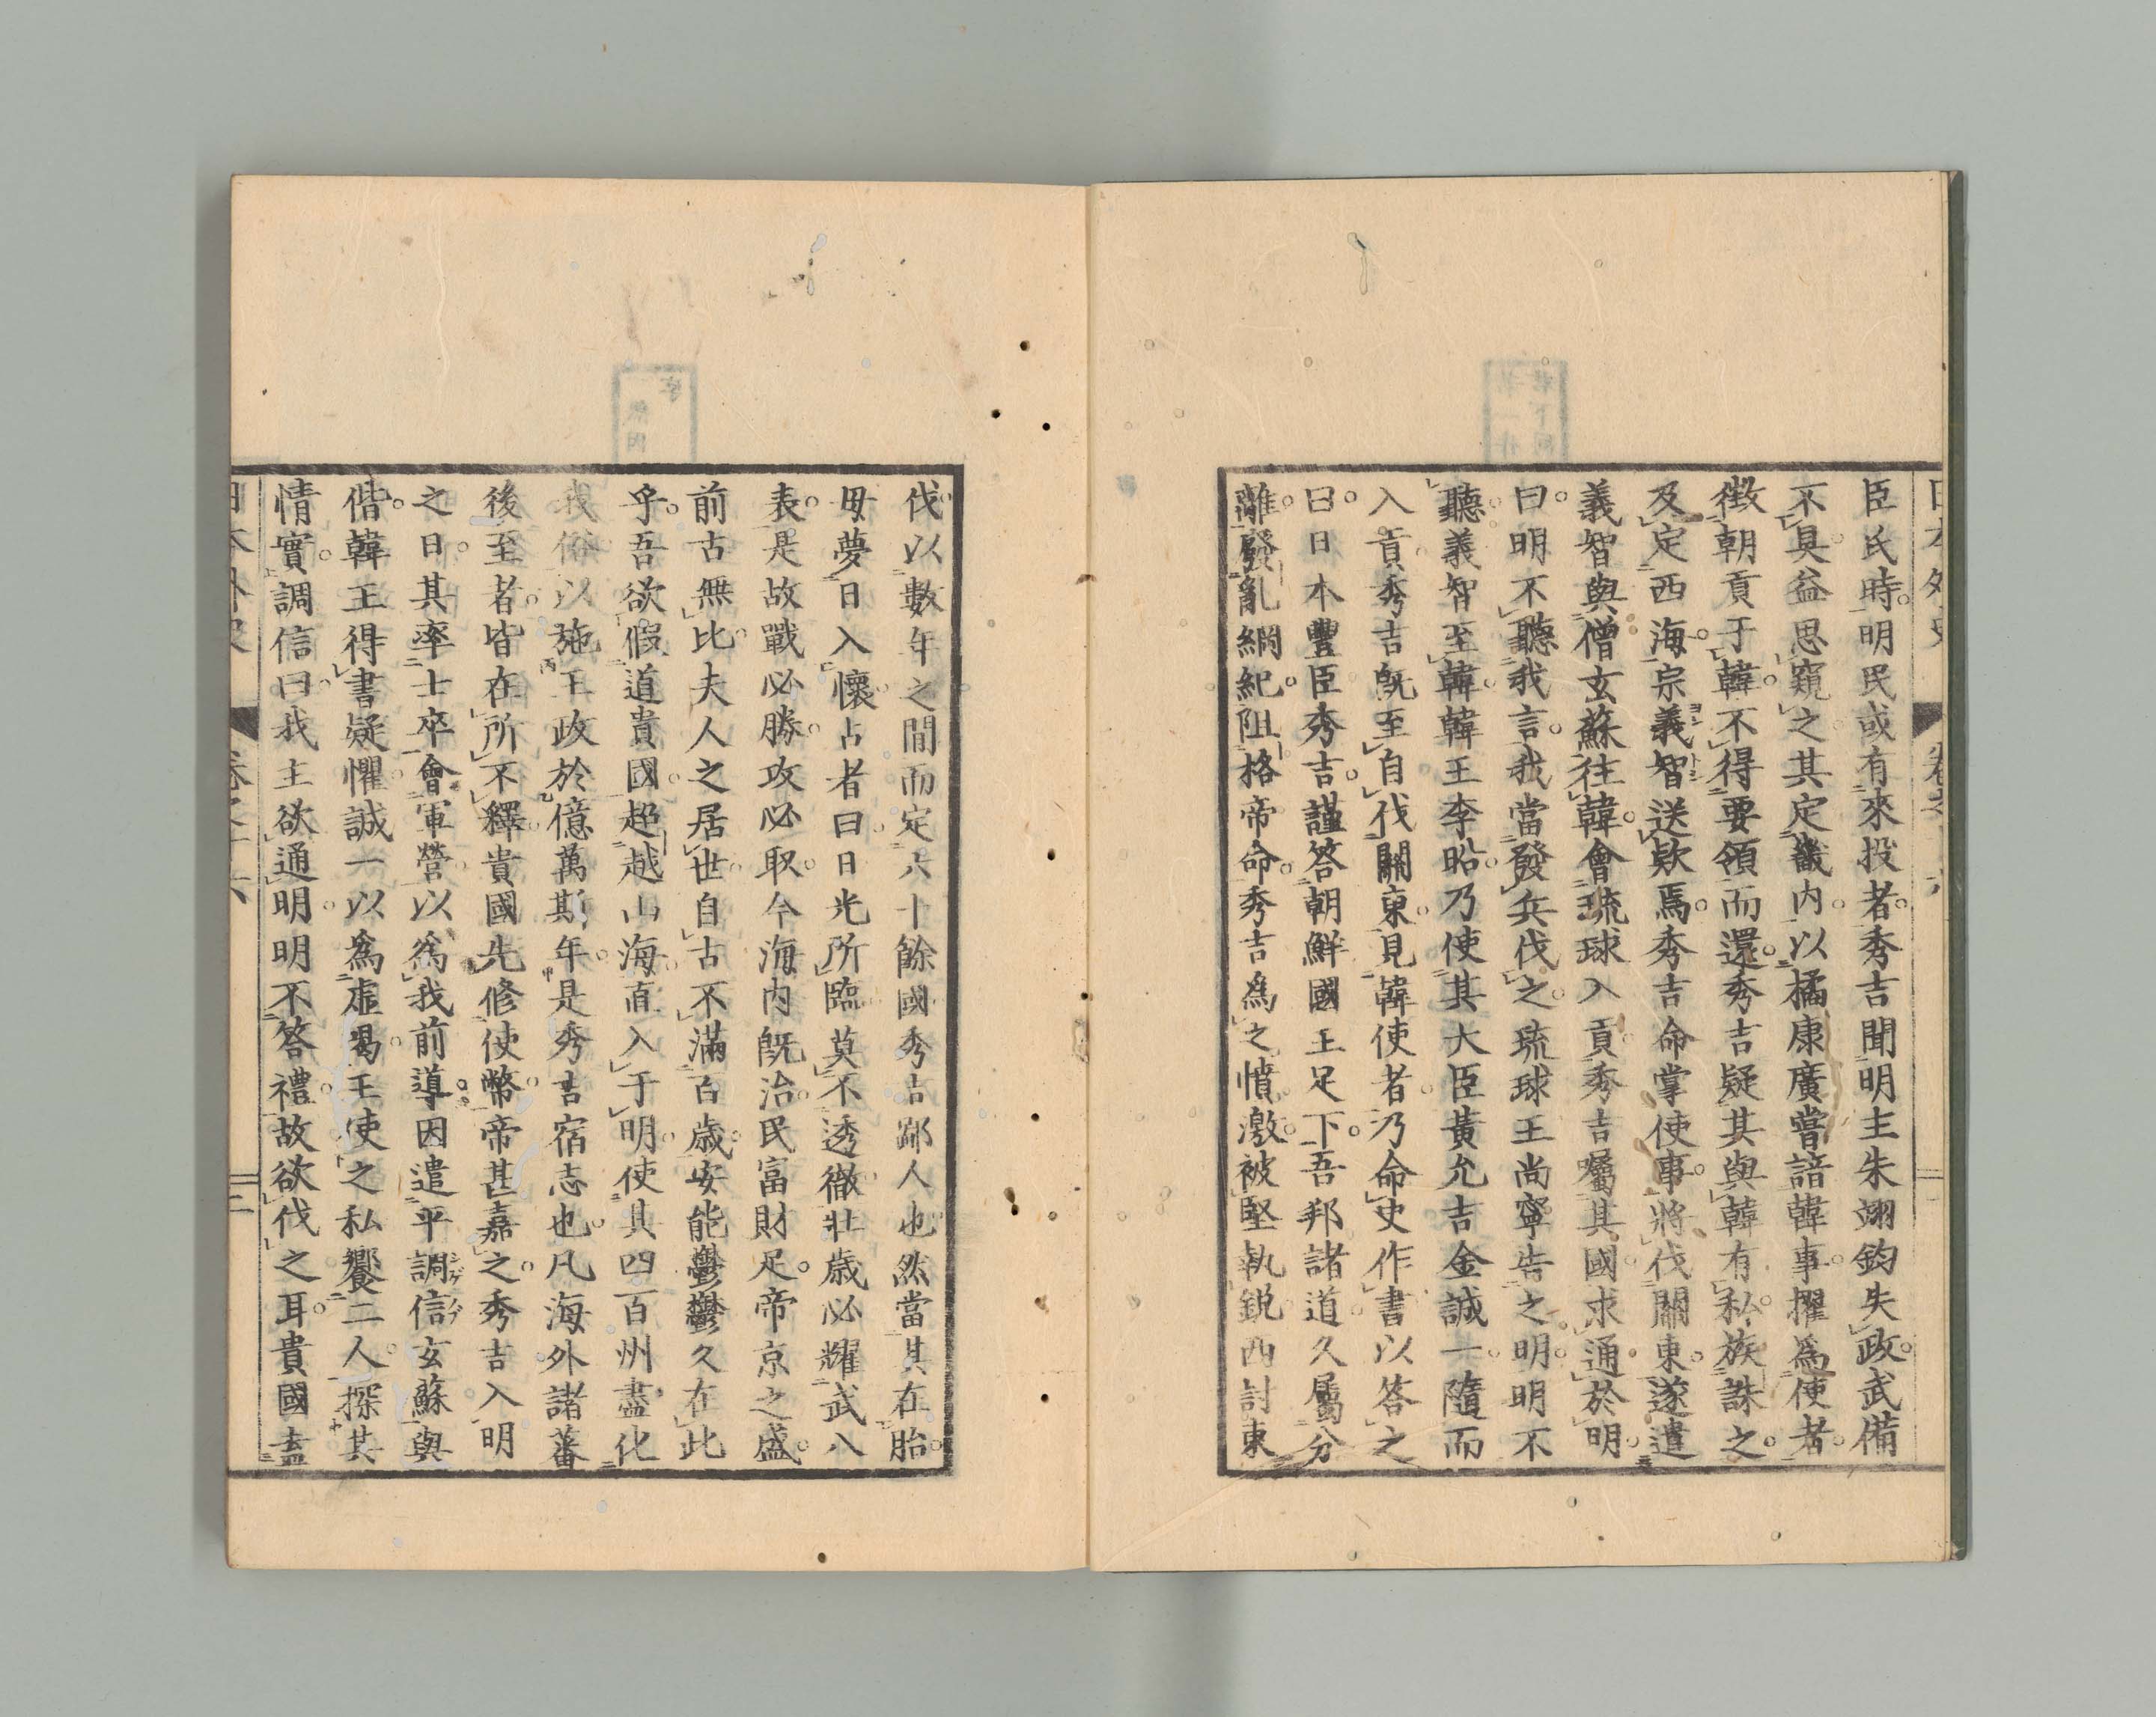 臣氏時。明民或有來投者。秀吉聞明主朱翊鈞失政。武備
不具。益思窺之。其定畿内。以橘康廣嘗諳韓事。擢爲使者。
徴朝貢于韓。不得要領而還。秀吉疑其與韓有私。族誅之。
及定西海。宗義智送欵焉。秀吉命掌使事。將伐關東。遂遣
義智與僧玄蘇往韓。會琉球入貢。秀吉囑其國求通於明。
曰。明不聽我言。我當發兵伐之。琉球王尚寧告之明。明不
聽。義智至韓。韓王李昭乃使其大臣黄允吉金誠一隨而
入貢。秀吉既至自伐關東。見韓使者。乃命史作書以答之
曰。日本豐臣秀吉。謹答朝鮮國王足下。吾邦諸道久屬分
離。廢亂綱紀。阻格帝命。秀吉爲之憤激。被堅執鋭。西討東
伐。以數年之間。而定六十餘國。秀吉鄙人也。然當其在胎。
母夢日入懷。占者曰。日光所臨。莫不透徹。壯歳必耀武八
表。是故戰必勝。攻必取。今海内既治。民富財足。帝京之盛。
前古無比。夫人之居世。自古不滿百歳。安能鬱鬱久在此
乎。吾欲假道貴國。超越山海。直入于明。使其四百州盡化
我俗。以施王政於億萬斯年。是秀吉宿志也。凡海外諸蕃
後至者。皆在所不釋。貴國先修使幣。帝甚嘉之。秀吉入明
之日。其率士卒。會軍營。以爲我前導。因遣平調信玄蘇與
偕。韓王得書疑懼。誠一以爲虚喝。王使之私饗二人。探其
情實。調信曰。我主欲通明。明不答禮。故欲伐之耳。貴國盍